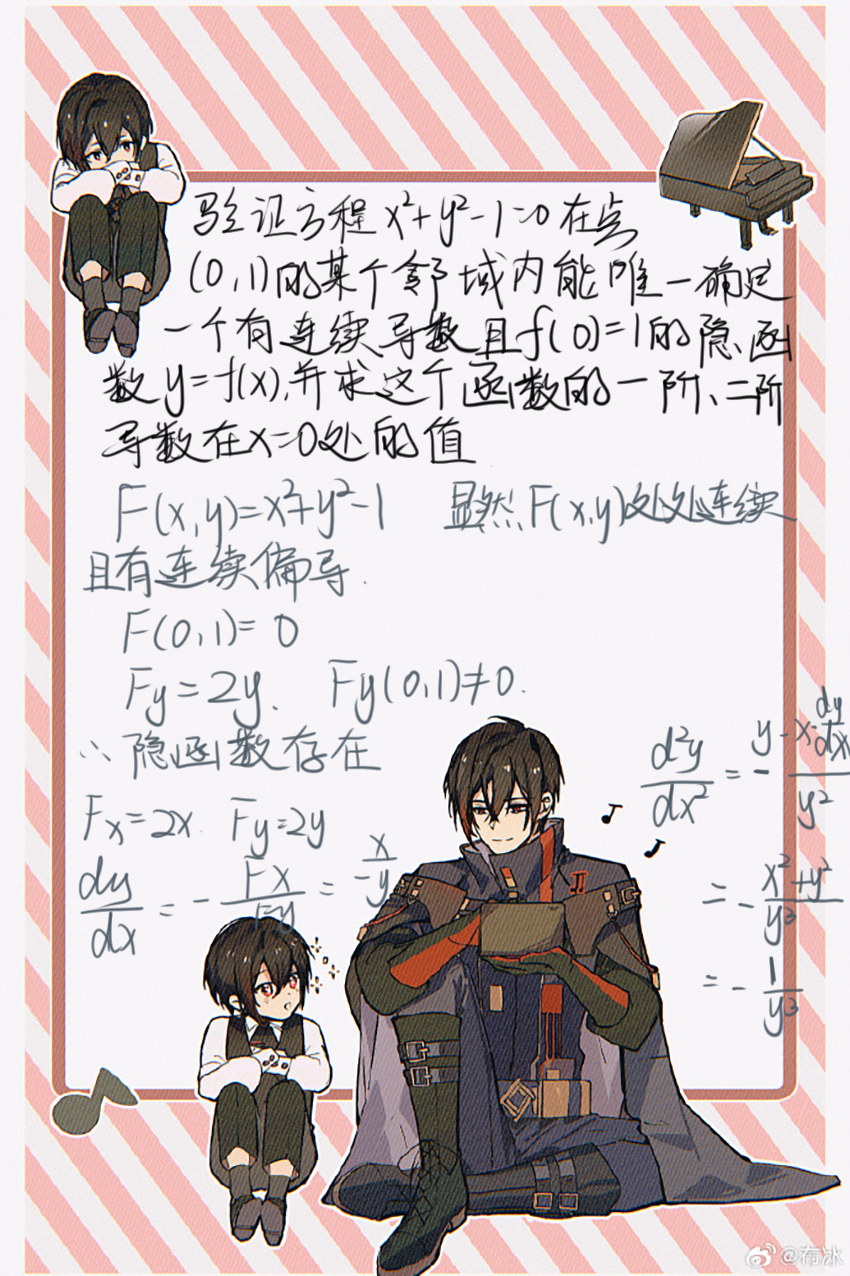 验证方程 x²+y²-1=0 在点
(0,1)的某个邻域内能唯一确定
一个有连续导数且f(0)=1的隐函
数 y=f(x),并求这个函数的一阶、二阶
导数在x=0处的值
F(x,y)=x²+y²-1 显然F(x,y)处处连续
且有连续偏导.
F(0,1)=0
Fy=2y, Fy(0,1)≠0.
∴隐函数存在
Fx=2x. Fy=2y
dy/dx = -Fx/Fy = -x/y
d²y/dx² = -(y-x·dy/dx)/y²
= -(x²+y²)/y³
= -1/y³
@布冰